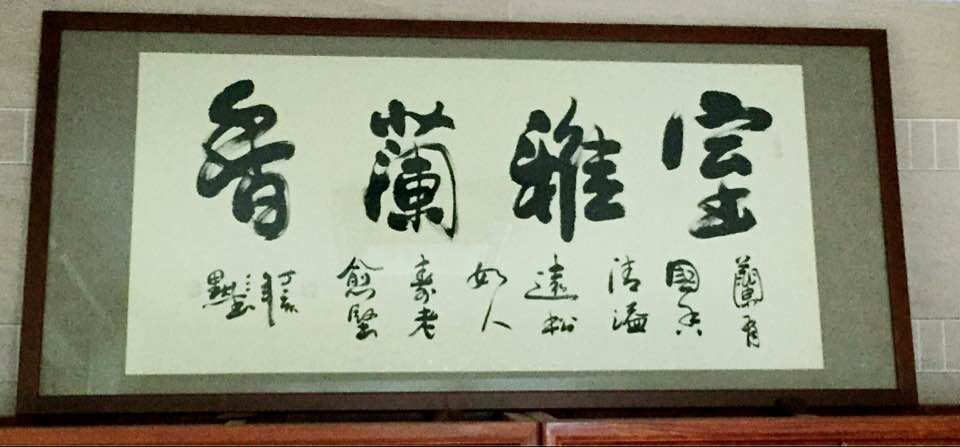 室雅蘭香
蘭有
國香
清溢
遠松
如人
壽老
愈堅
丁亥